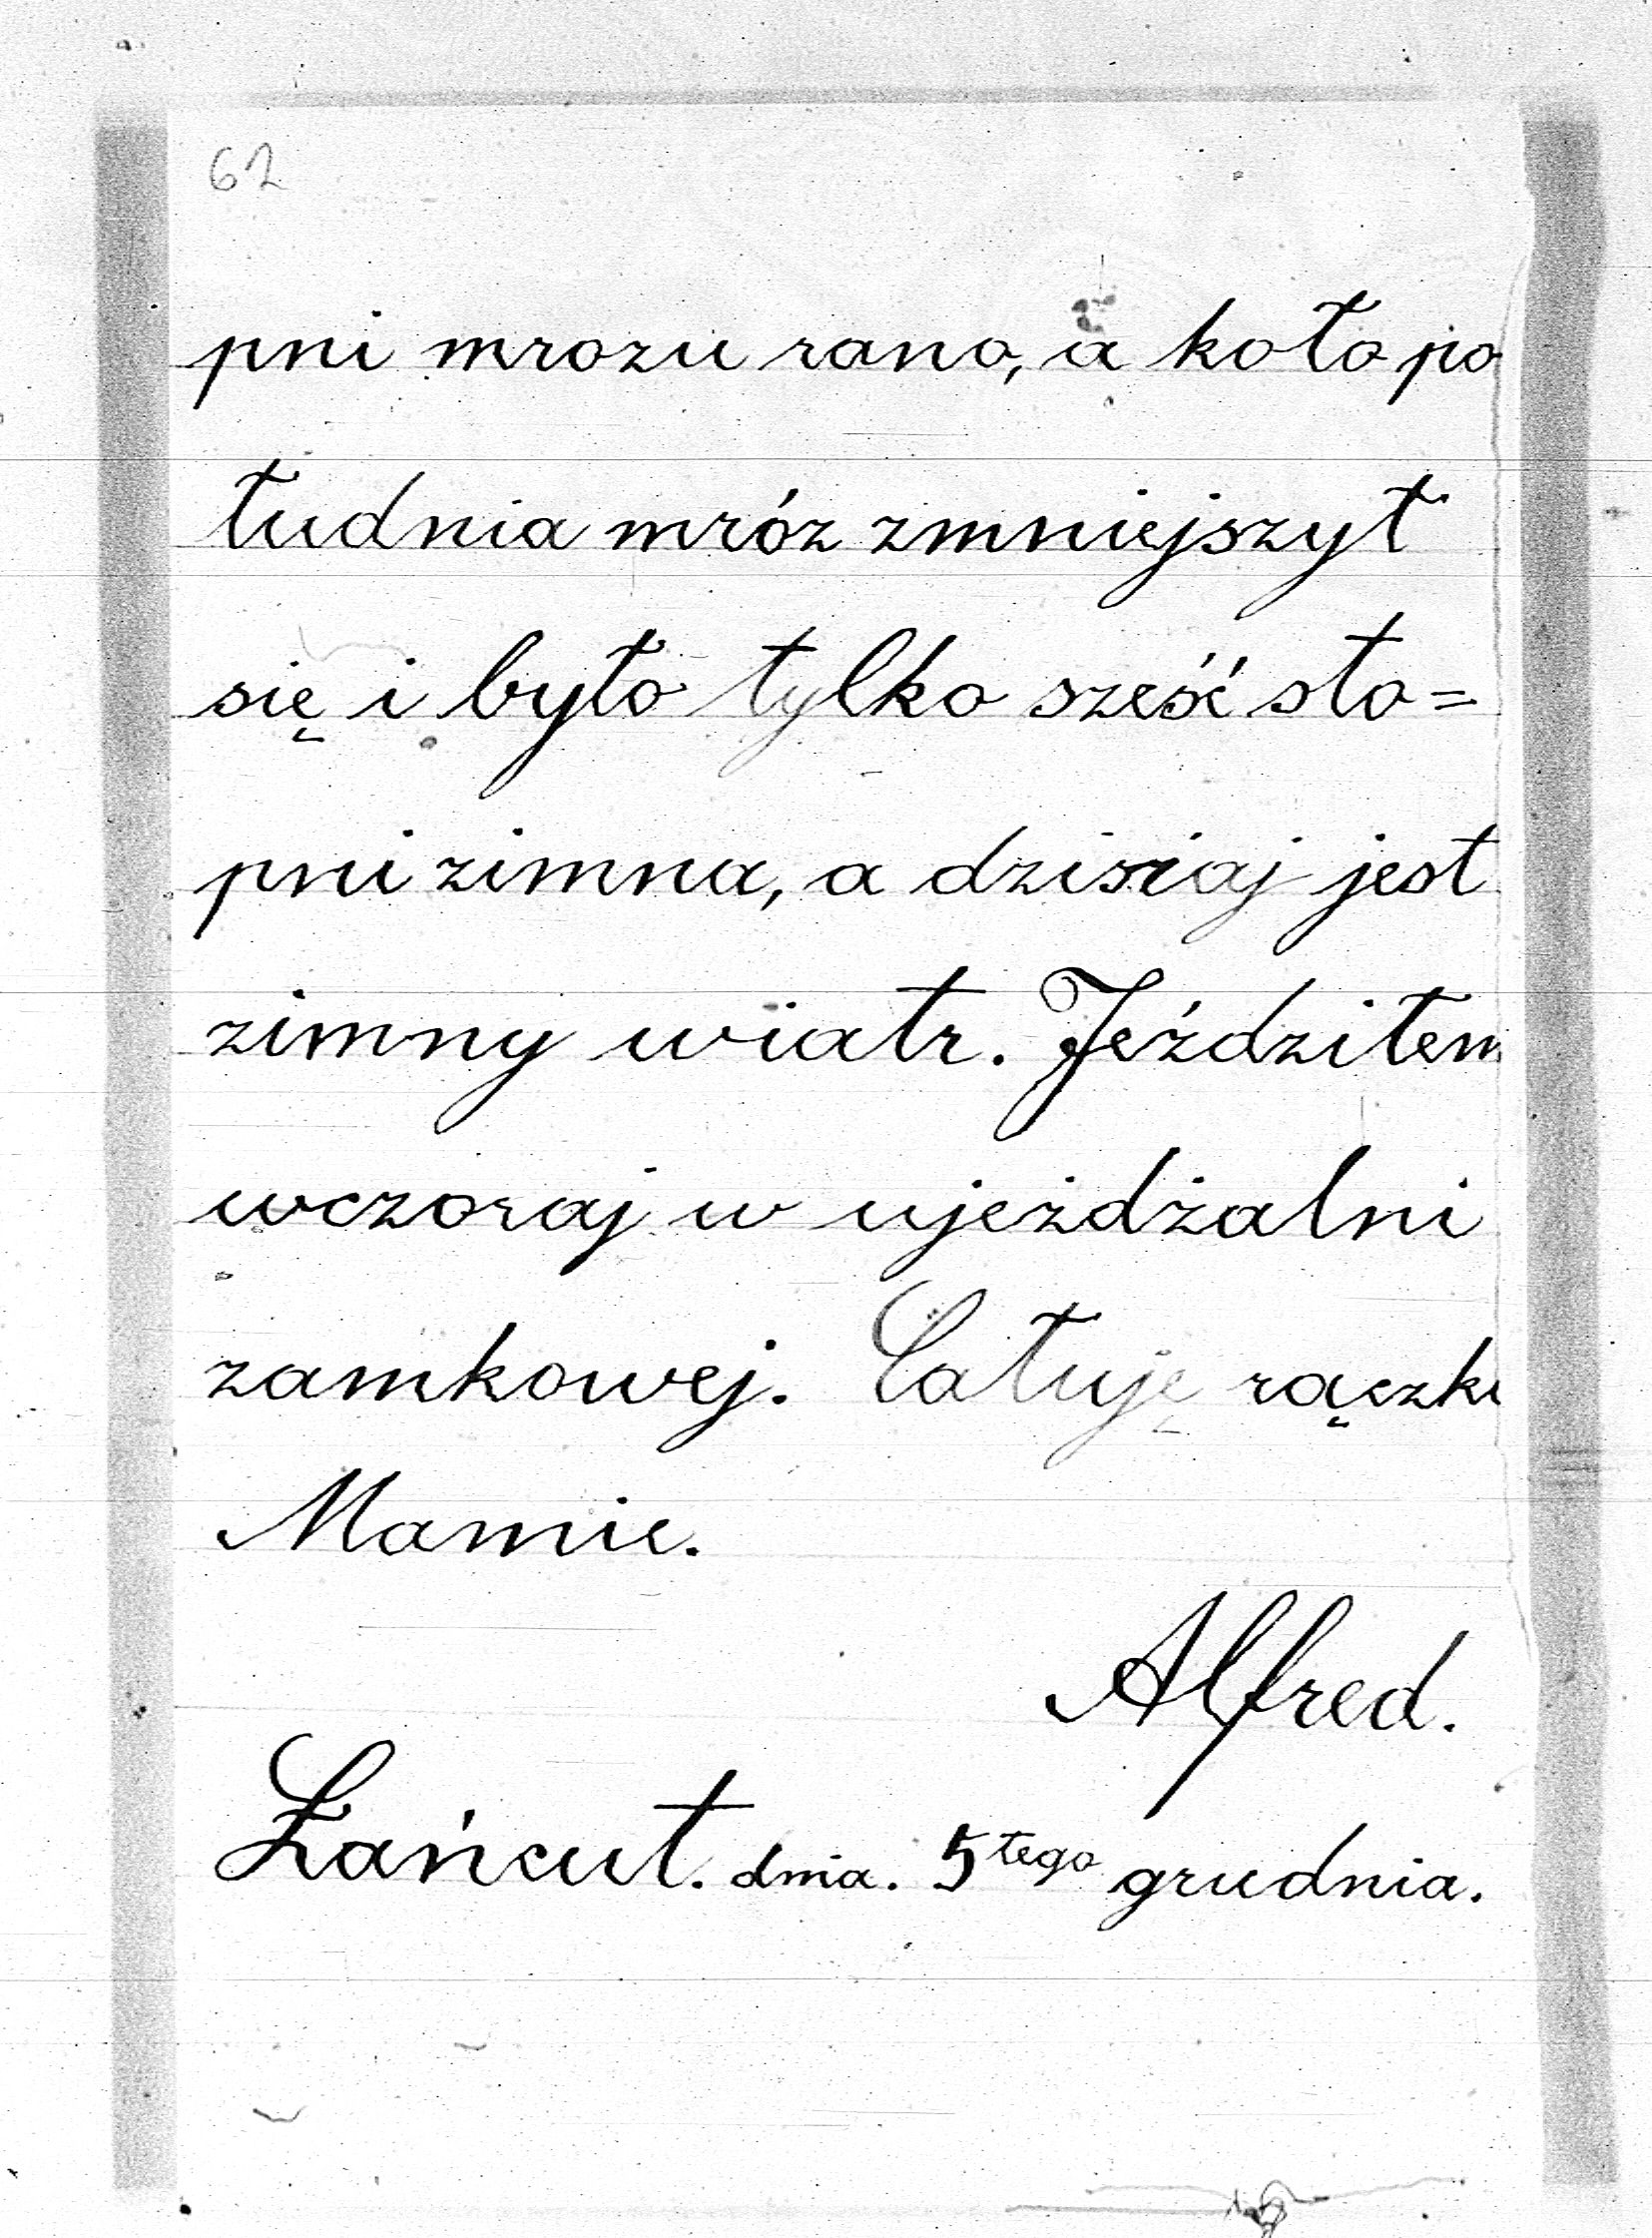 62
pni mrozu rano, a koło po
łudnia mróz zmniejszył
się i było tylko sześć sto=
pni zimna, a dzisiaj jest
zimny wiatr. Jeździłem
wczoraj w ujeżdżalni
zamkowej. Całuję rączki
Mamie.
Alfred.
Łańcut. dnia. 5tego grudnia.